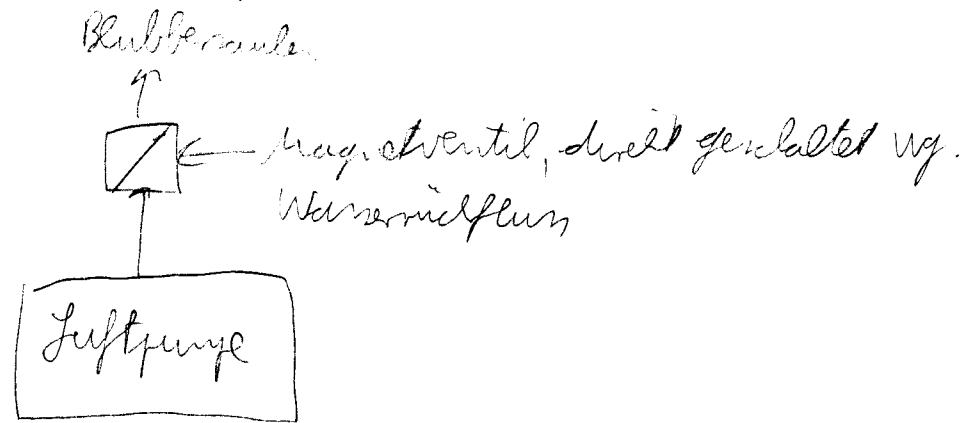 Blubbersäulen
Magnetventil, direkt geschaltet wg.
Wasserrückfluss
Luftpumpe